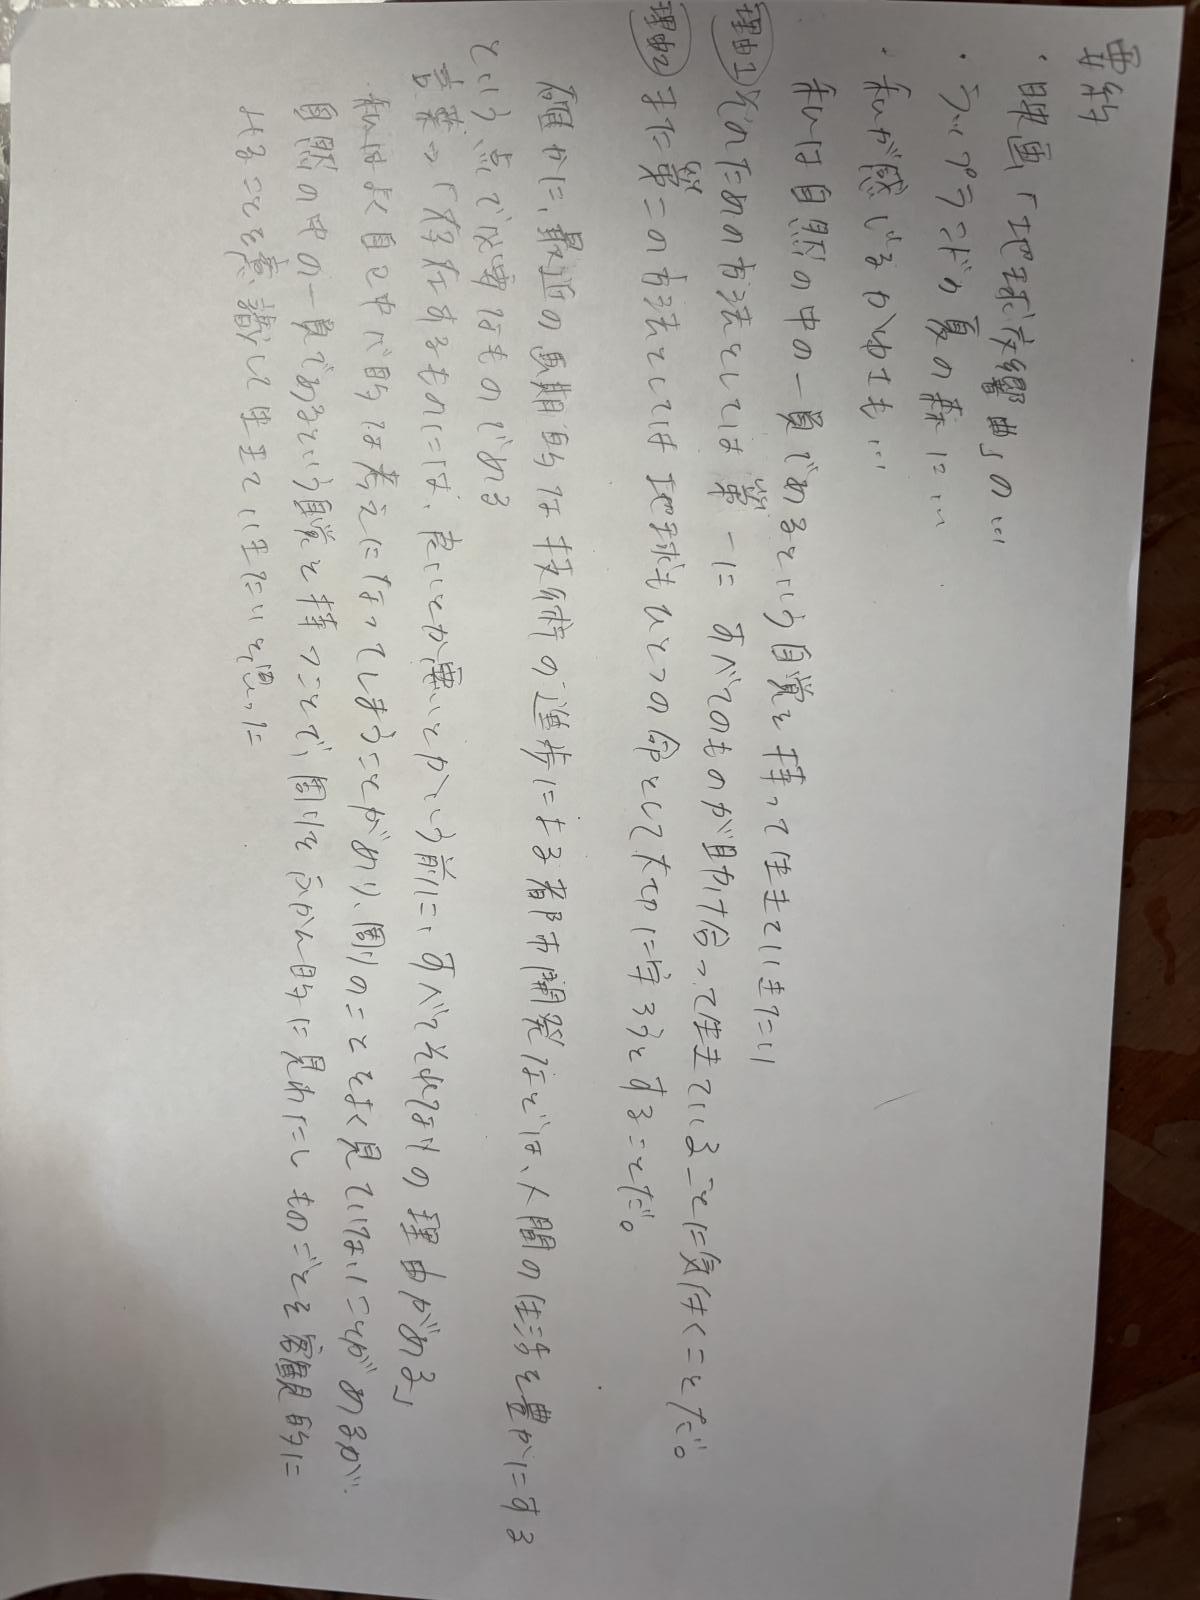 要約
・映画「地球交響曲」の…
・ラップランドの夏の森に…
・私が感じるかねても…
私は自然の中の一員であるという自覚を持って生きていきたい
理由1 そのための方法としては第一にすべてのものが助け合って生きていることに気付くことだ。
理由2 また第二の方法としては地球もひとつの命として大切に守ろうとすることだ。
確かに、最近の画期的な技術の進歩による都市開発などは、人間の生活を豊かにする
という点で必要なものである
言葉→「存在するものには、良いとか悪いとかいう前に、すべてそれなりの理由がある」
私はよく自己中心的な考えになってしまうことがあり、周りのことをよく見ていないことがあるが、
自然の中の一員であるという自覚を持つことで、周りをふかん的に見れたしものごとを客観的に
みることを意識して生きていきたいと思った